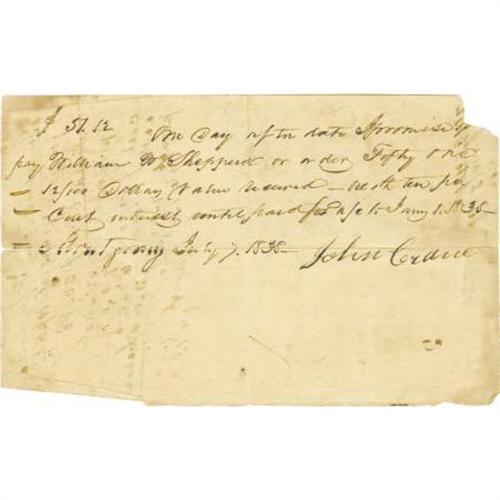 $ 51.12 One Day after date I promise to
pay William W Shepperd or order Fifty One
12/100 Dollars Value received – with ten per
Cent interest until paid
Montgomery July 7. 1838 – John Crane